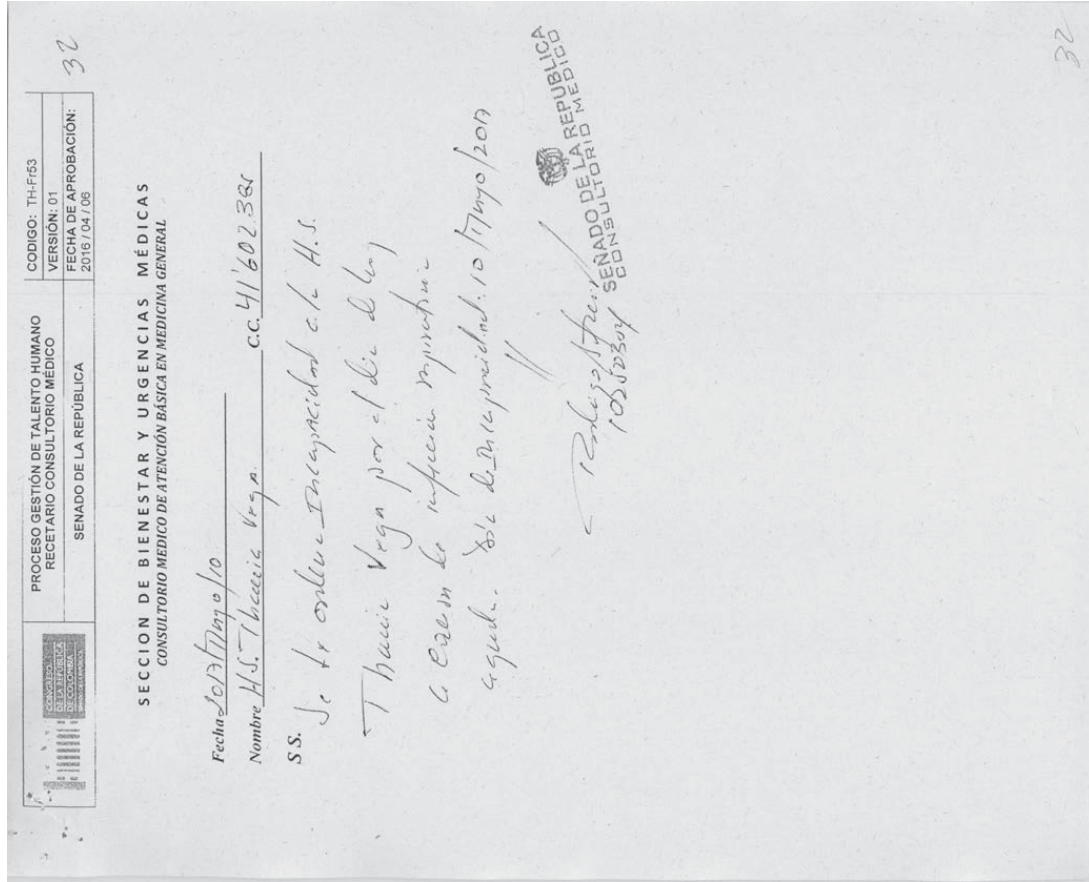 CONGRESO
DE LA REPÚBLICA
DE COLOMBIA
PROCESO GESTIÓN DE TALENTO HUMANO
RECETARIO CONSULTORIO MÉDICO
SENADO DE LA REPÚBLICA
CODIGO: TH-Fr53
VERSIÓN: 01
FECHA DE APROBACIÓN:
2016 / 04 / 06
32
SECCION DE BIENESTAR Y URGENCIAS MÉDICAS
CONSULTORIO MEDICO DE ATENCIÓN BÁSICA EN MEDICINA GENERAL
Fecha 2017/Mayo/10
Nombre H.S. Thania Vega. C.C. 41'602.385
S S.
Se ordena Incapacidad a la H.S.
Thania Vega por el día de hoy
a razón de infección respiratoria
aguda. Día de Incapacidad: 10/Mayo/2017
SENADO DE LA REPUBLICA
CONSULTORIO MEDICO
32